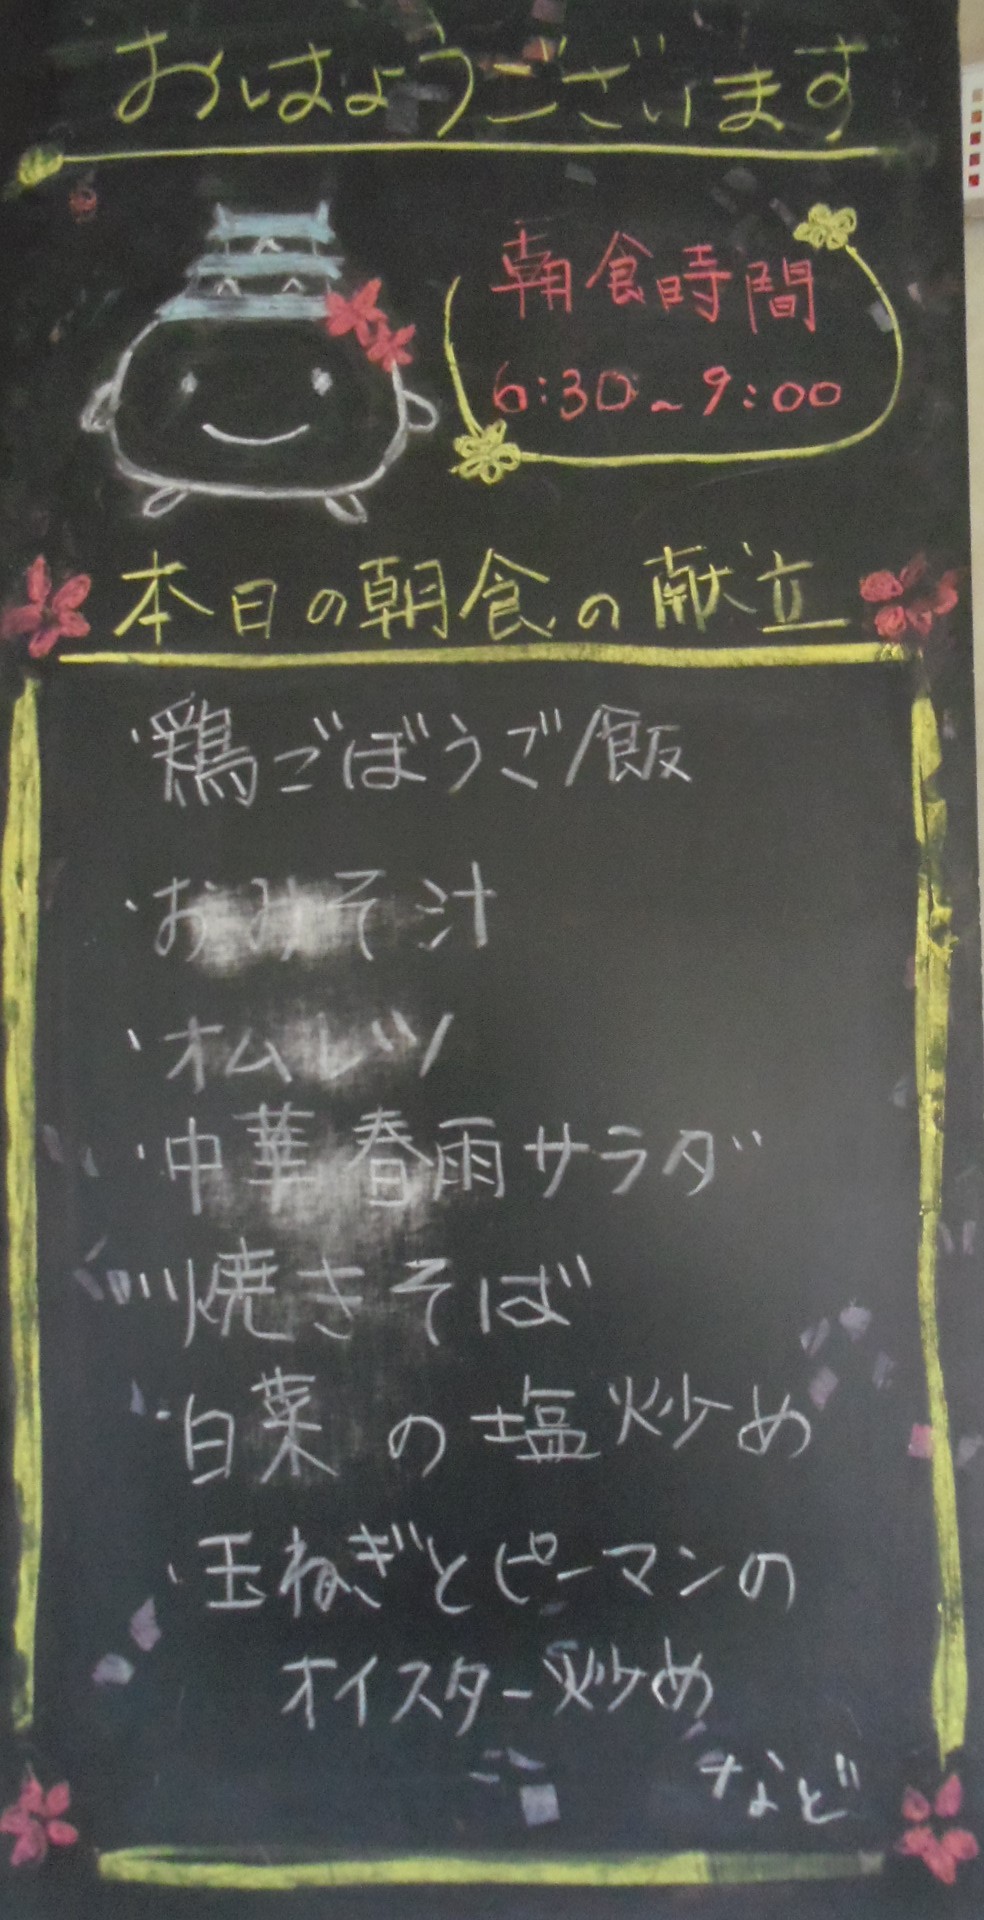 おはようございます
朝食時間
6:30~9:00
本日の朝食の献立
・鶏ごぼうご飯
・おみそ汁
・オムレツ
・中華春雨サラダ
・焼きそば
・白菜の塩炒め
・玉ねぎとピーマンの
オイスター炒め
など